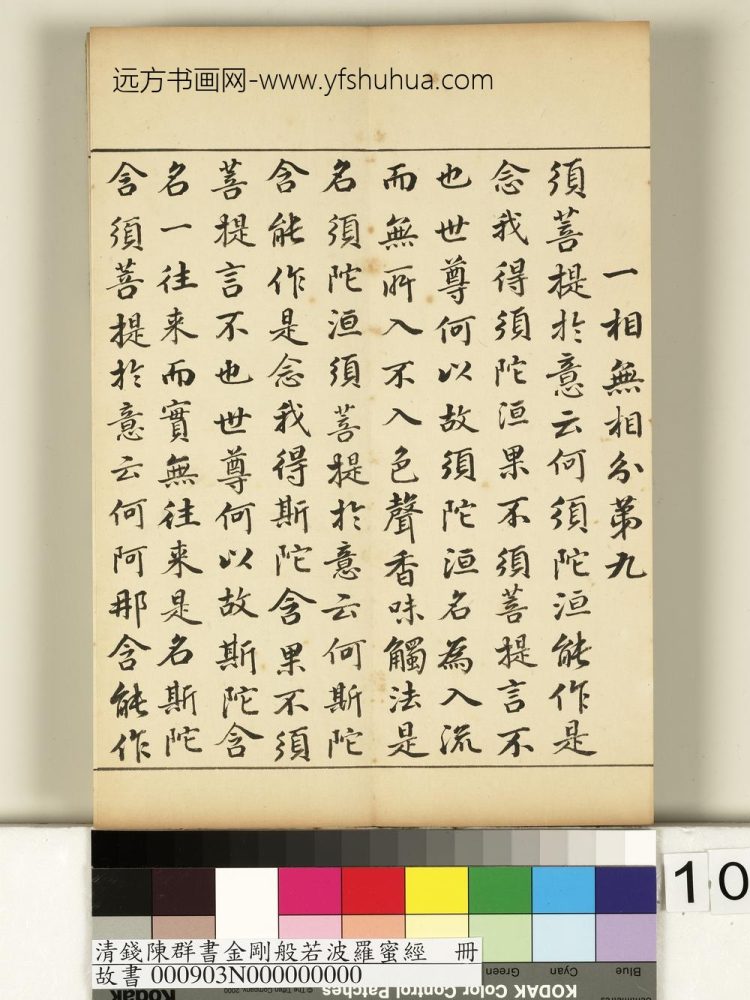 远方书画网-www.yfshuhua.com
一相無相分第九
須菩提於意云何須陀洹能作是
念我得須陀洹果不須菩提言不
也世尊何以故須陀洹名為入流
而無所入不入色聲香味觸法是
名須陀洹須菩提於意云何斯陀
含能作是念我得斯陀含果不須
菩提言不也世尊何以故斯陀含
名一往来而實無往来是名斯陀
含須菩提於意云何阿那含能作
10
清錢陳群書金剛般若波羅蜜經 冊
故書 000903N000000000
Green
Cyan
Blue
KODAK Color Control Patches